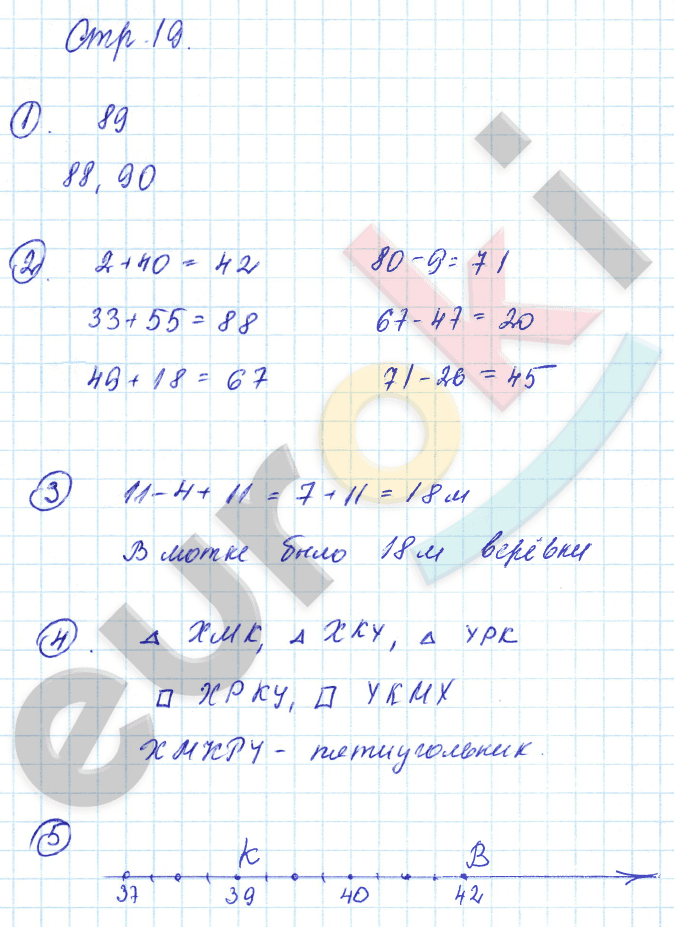 Стр. 19.
1. 89
88, 90
2. 2+40 = 42 80-9 = 71
33+55 = 88 67-47 = 20
49+18 = 67 71-26 = 45
3 11-4+11 = 7+11 = 18м
В мотке было 18м верёвки
4. △ ХМК, △ ХКУ, △ УРК
□ ХРКУ, □ УКМХ
ХМКРУ - пятиугольник.
5
К В
37 39 40 42
euroki